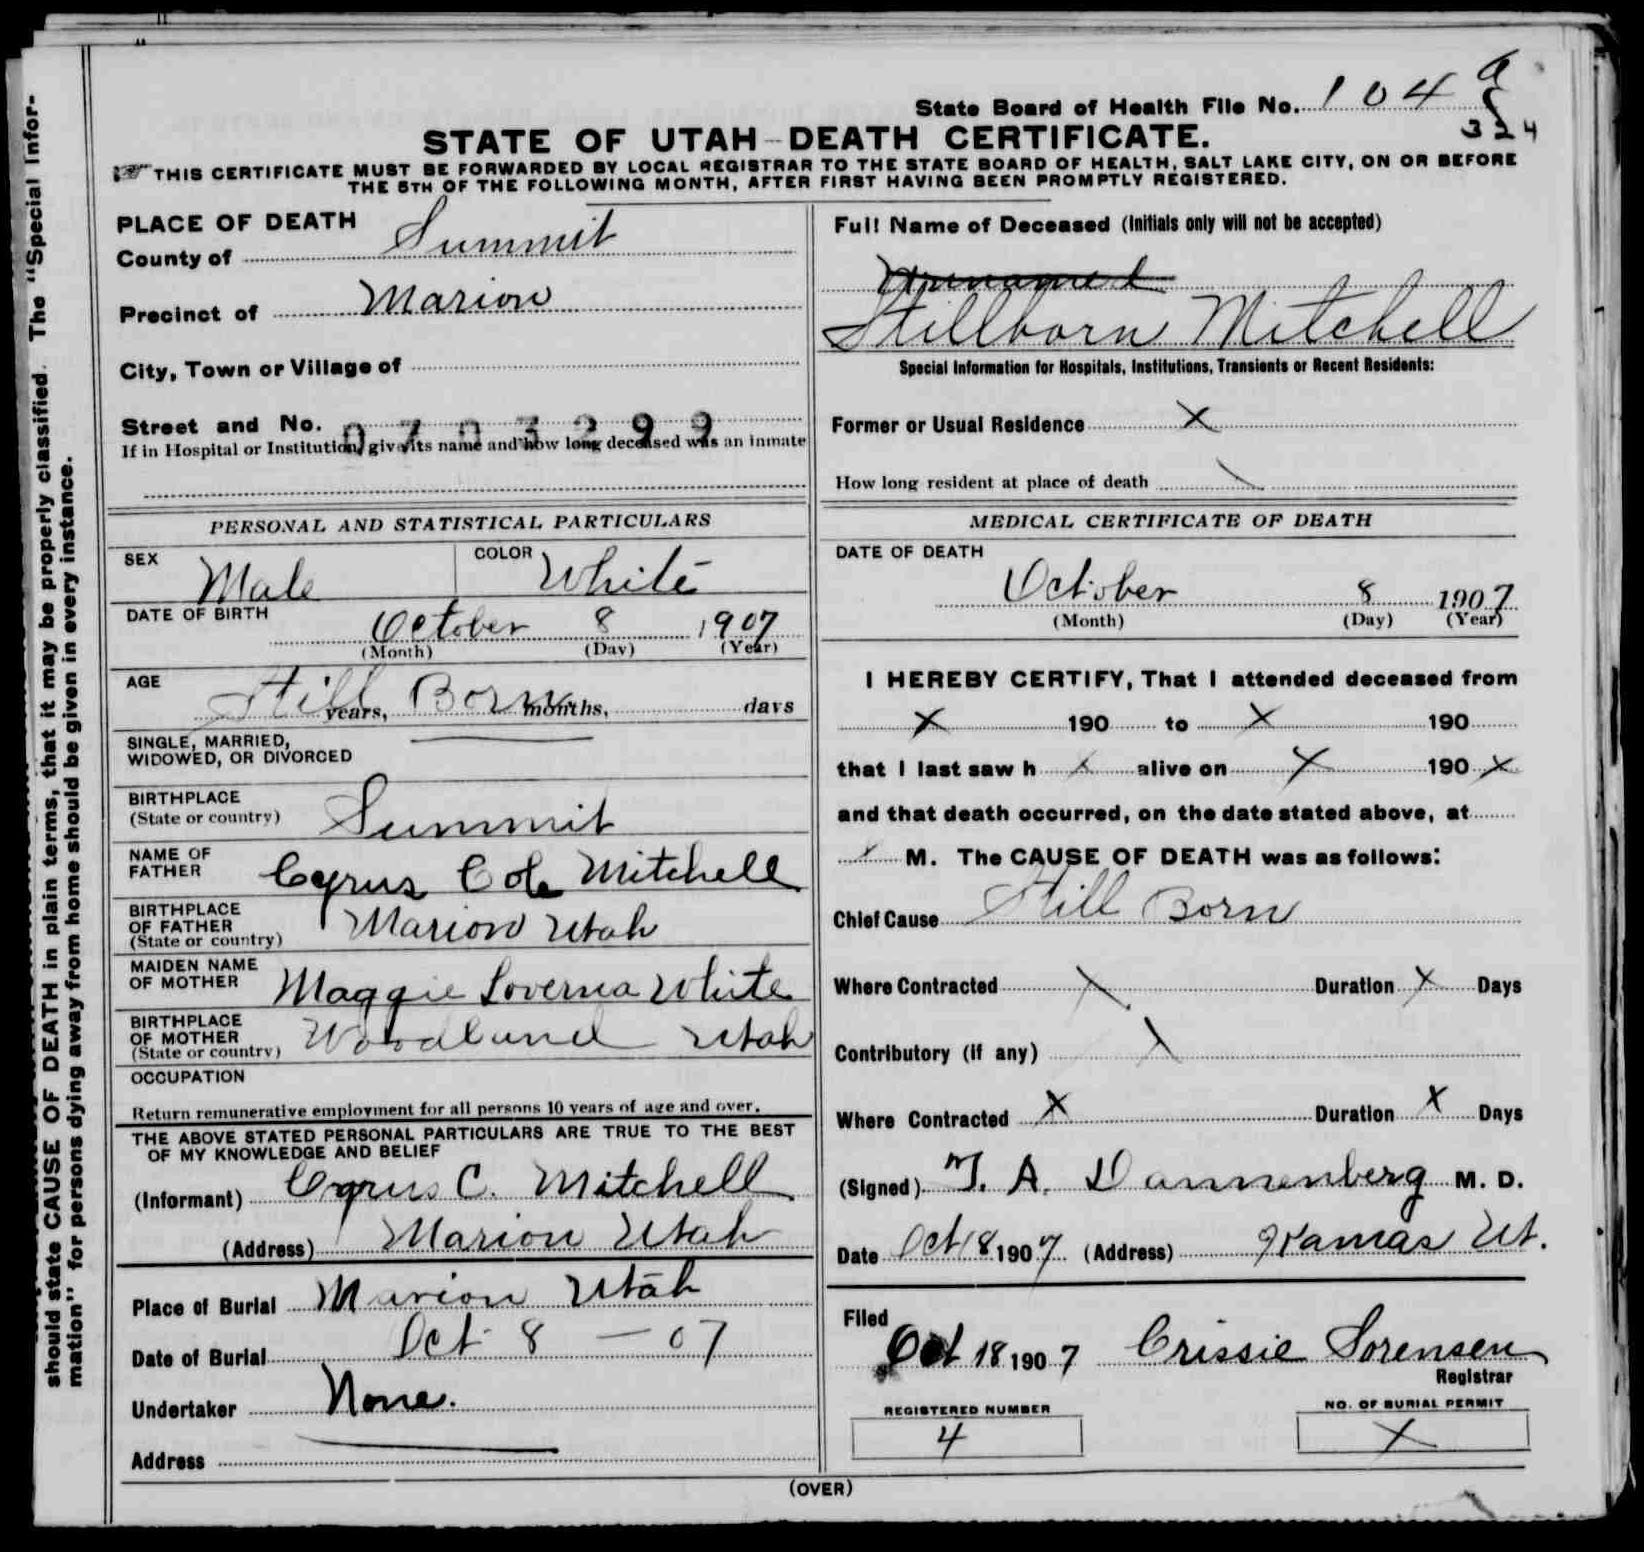 State Board of Health File No. 104
324
STATE OF UTAH-DEATH CERTIFICATE.
THIS CERTIFICATE MUST BE FORWARDED BY LOCAL REGISTRAR TO THE STATE BOARD OF HEALTH, SALT LAKE CITY, ON OR BEFORE
THE 5TH OF THE FOLLOWING MONTH, AFTER FIRST HAVING BEEN PROMPTLY REGISTERED.
PLACE OF DEATH
County of Summit
Precinct of Marion
City, Town or Village of
Street and No. 0703299
If in Hospital or Institution, give its name and how long deceased was an inmate
PERSONAL AND STATISTICAL PARTICULARS
SEX Male COLOR White
DATE OF BIRTH
October 8 1907
(Month) (Day) (Year)
AGE Still Born
years, months, days
SINGLE, MARRIED,
WIDOWED, OR DIVORCED
BIRTHPLACE
(State or country) Summit
NAME OF
FATHER Cyrus Cole Mitchell
BIRTHPLACE
OF FATHER Marion Utah
(State or country)
MAIDEN NAME
OF MOTHER Maggie Loverna White
BIRTHPLACE
OF MOTHER Woodland Utah
(State or country)
OCCUPATION
Return remunerative employment for all persons 10 years of age and over.
THE ABOVE STATED PERSONAL PARTICULARS ARE TRUE TO THE BEST
OF MY KNOWLEDGE AND BELIEF
(Informant) Cyrus C. Mitchell
(Address) Marion Utah
Place of Burial Marion Utah
Date of Burial Oct 8 - 07
Undertaker None.
Address
Full Name of Deceased (Initials only will not be accepted)
Unnamed
Stillborn Mitchell
Special Information for Hospitals, Institutions, Transients or Recent Residents:
Former or Usual Residence X
How long resident at place of death
MEDICAL CERTIFICATE OF DEATH
DATE OF DEATH
October 8 1907
(Month) (Day) (Year)
I HEREBY CERTIFY, That I attended deceased from
X 190 to X 190
that I last saw h X alive on X 190 X
and that death occurred, on the date stated above, at
X M. The CAUSE OF DEATH was as follows:
Chief Cause Still Born
Where Contracted X Duration X Days
Contributory (if any) X
Where Contracted X Duration X Days
(Signed) T. A. Dannenberg M. D.
Date Oct 18 1907 (Address) Kamas Ut.
Filed
Oct 18 1907 Crissie Sorensen
Registrar
REGISTERED NUMBER
4
NO. OF BURIAL PERMIT
X
(OVER)
should state CAUSE OF DEATH in plain terms, that it may be properly classified. The "Special Infor-
mation" for persons dying away from home should be given in every instance.